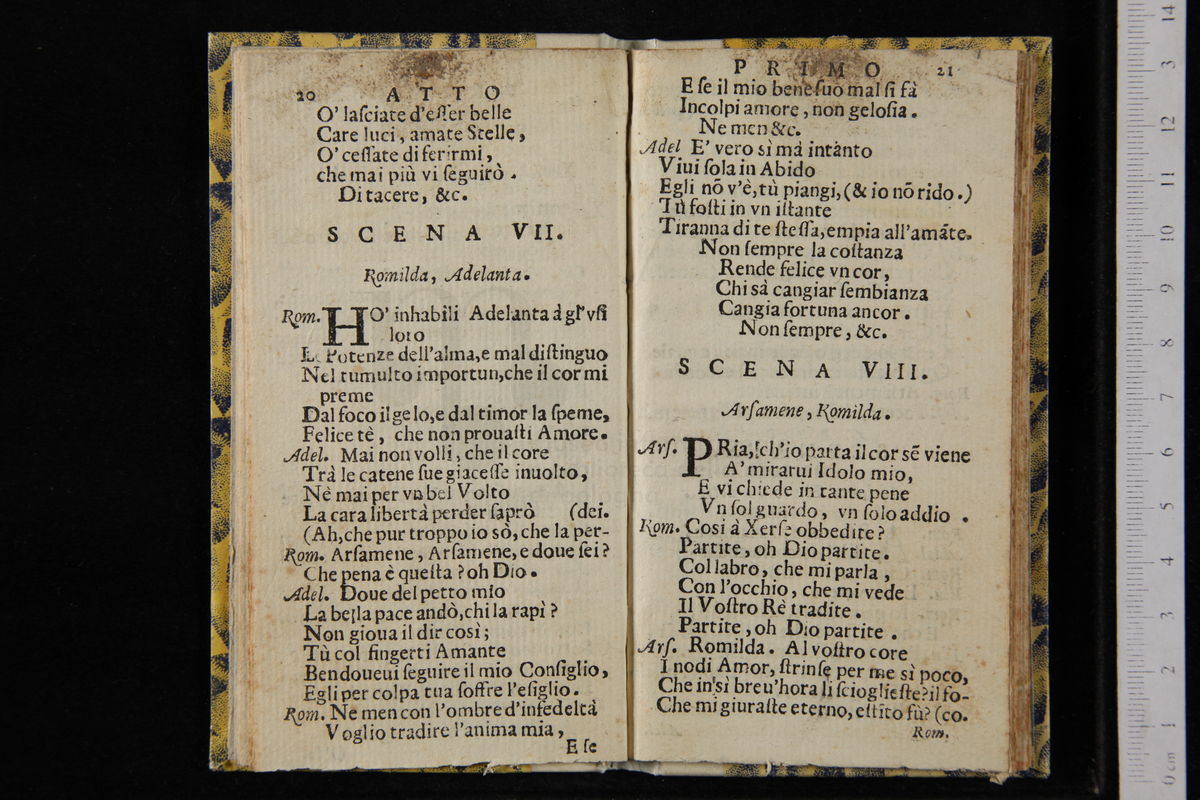 20 ATTO
O' laſciate d'eſſer belle
Care luci, amate Stelle,
O' ceſſate di ferirmi,
che mai più vi ſeguirò.
Di tacere, &c.
SCENA VII.
Romilda, Adelanta.
Rom. HO' inhabili Adelanta à gl' vſi
loro
Le Potenze dell'alma, e mal diſtinguo
Nel tumulto importun, che il cor mi
preme
Dal foco il gelo, e dal timor la ſpeme,
Felice tè, che non prouaſti Amore.
Adel. Mai non volli, che il core
Trà le catene ſue giaceſſe inuolto,
Nè mai per vn bel Volto
La cara libertà perder ſaprò (dei.
(Ah, che pur troppo io sò, che la per-
Rom. Arſamene, Arſamene, e doue ſei?
Che pena è queſta? oh Dio.
Adel. Doue del petto mio
La bella pace andò, chi la rapì?
Non gioua il dir così;
Tù col fingerti Amante
Bendoueui ſeguire il mio Conſiglio,
Egli per colpa tua ſoffre l'eſiglio.
Rom. Ne men con l'ombre d'infedeltà
Voglio tradire l'anima mia,
E ſe
PRIMO 21
E ſe il mio bene ſuo mal ſi fà
Incolpi amore, non geloſia.
Ne men &c.
Adel E' vero sì mà intànto
Viui ſola in Abido
Egli nō v'è, tù piangi, (& io nō rido.)
Tù foſti in vn iſtante
Tiranna di te ſteſſa, empia all'amāte.
Non ſempre la coſtanza
Rende felice vn cor,
Chi sà cangiar ſembianza
Cangia fortuna ancor.
Non ſempre, &c.
SCENA VIII.
Arſamene, Romilda.
Arſ. PRia, ch'io parta il cor sē viene
A' mirarui Idolo mio,
E vi chiede in tante pene
Vn ſol guardo, vn ſolo addio.
Rom. Cosi à Xerſe obbedite?
Partite, oh Dio partite.
Col labro, che mi parla,
Con l'occhio, che mi vede
Il Voſtro Rè tradite.
Partite, oh Dio partite.
Arſ. Romilda. Al voſtro core
I nodi Amor, ſtrinſe per me sì poco,
Che in sì breu'hora li ſciogliefte? il fo-
Che mi giuraſte eterno, eſtito fù? (co.
Rom.
14
13
12
11
10
9
8
7
6
5
4
3
2
1
0 cm